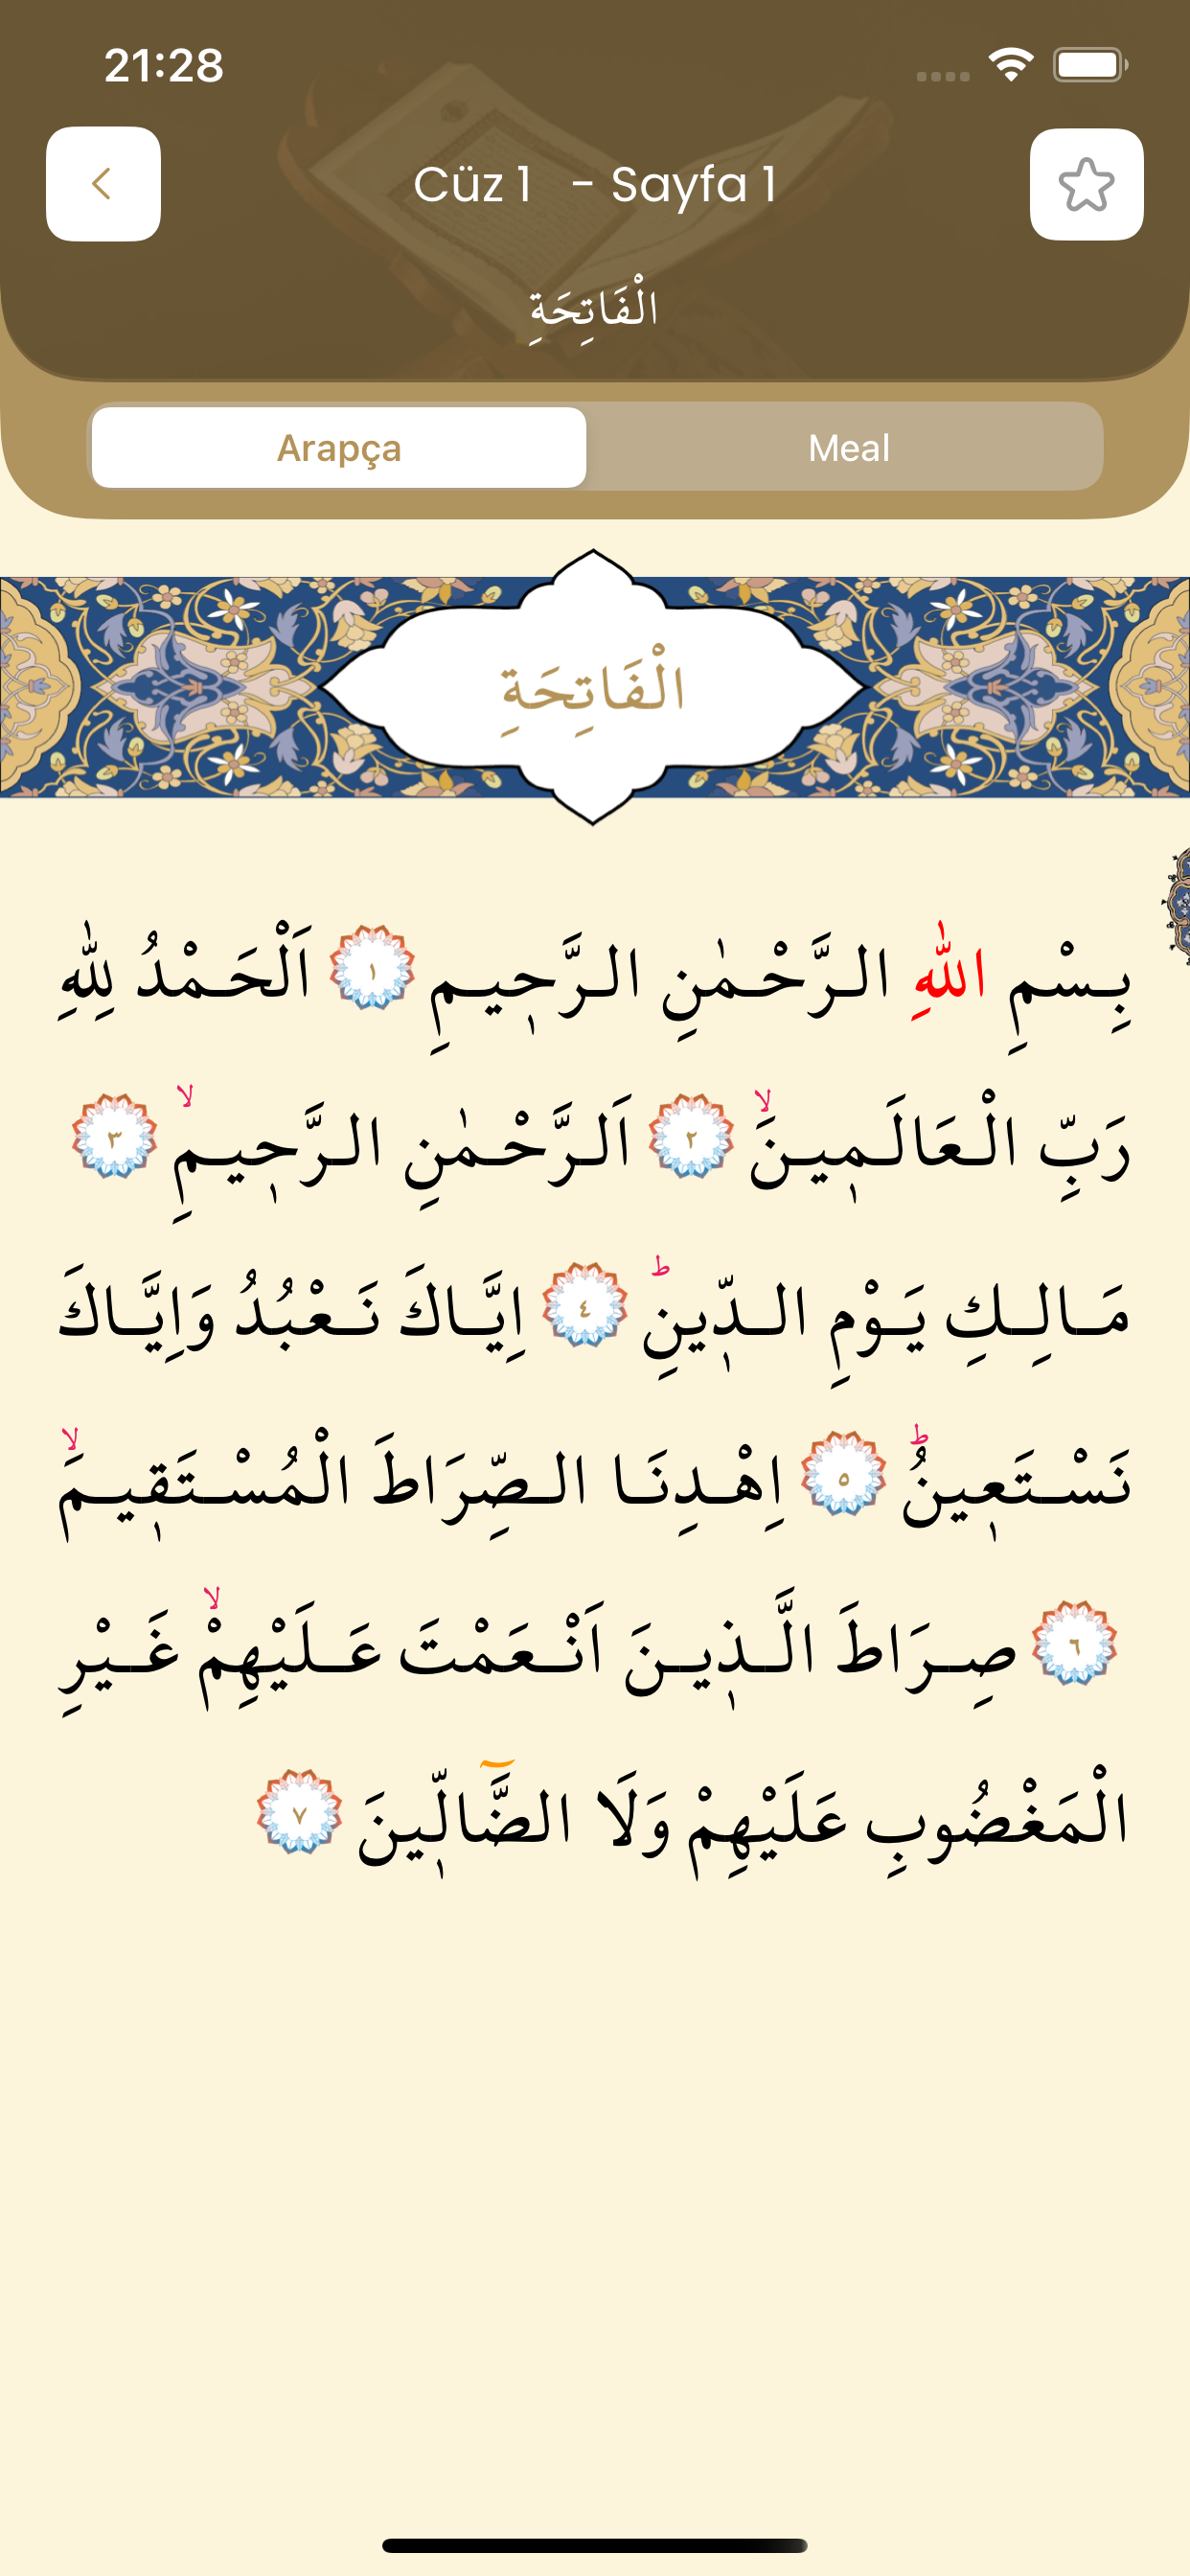 21:28
Cüz 1 - Sayfa 1
الْفَاتِحَةِ
Arapça Meal
الْفَاتِحَةِ
بِسْمِ اللّٰهِ الرَّحْمٰنِ الرَّح۪يمِ ١ اَلْحَمْدُ لِلّٰهِ
رَبِّ الْعَالَم۪ينَۙ ٢ اَلرَّحْمٰنِ الرَّح۪يمِۙ ٣
مَالِكِ يَوْمِ الدّ۪ينِۜ ٤ اِيَّاكَ نَعْبُدُ وَاِيَّاكَ
نَسْتَع۪ينُۜ ٥ اِهْدِنَا الصِّرَاطَ الْمُسْتَق۪يمَۙ
٦ صِرَاطَ الَّذ۪ينَ اَنْعَمْتَ عَلَيْهِمْۙ غَيْرِ
الْمَغْضُوبِ عَلَيْهِمْ وَلَا الضَّٓالّ۪ينَ ٧